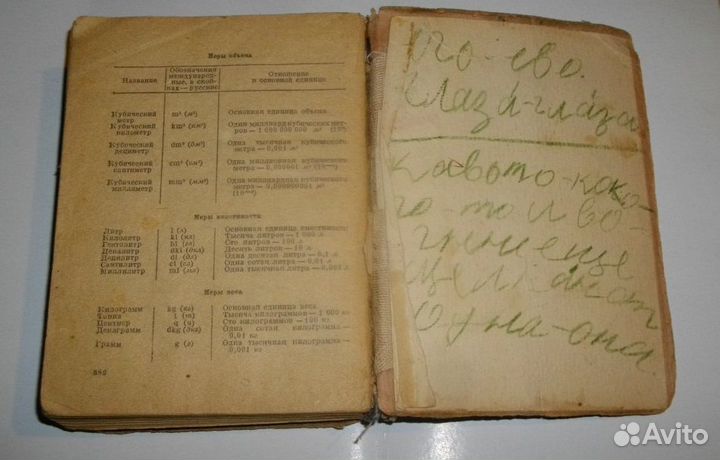 Меры объема
Название
Обозначения международные, в скобках — русские
Отношение к основной единице
Кубический метр
m³ (м³)
Основная единица объема
Кубический километр
km³ (км³)
Один миллиард кубических метров — 1 000 000 000 м³ (10⁹)
Кубический дециметр
dm³ (дм³)
Одна тысячная кубического метра — 0,001 м³
Кубический сантиметр
cm³ (см³)
Одна миллионная кубического метра — 0,000001 м³
Кубический миллиметр
mm³ (мм³)
Одна миллиардная кубического метра — 0,000000001 м³
Меры вместимости
Литр
l (л)
Основная единица вместимости
Килолитр
kl (кл)
Тысяча литров — 1 000 л
Гектолитр
hl (гл)
Сто литров — 100 л
Декалитр
dkl (дкл)
Десять литров — 10 л
Децилитр
dl (дл)
Одна десятая литра — 0,1 л
Сантилитр
cl (сл)
Одна сотая литра — 0,01 л
Миллилитр
ml (мл)
Одна тысячная литра — 0,001 л
Меры веса
Килограмм
kg (кг)
Основная единица веса
Тонна
t (т)
Тысяча килограммов — 1 000 кг
Центнер
q (ц)
Сто килограммов — 100 кг
Декаграмм
dkg (дкг)
Одна сотая килограмма — 0,01 кг
Грамм
g (г)
Одна тысячная килограмма — 0,001 кг
его-ево.
глаза-глаза
ково то-како-
го-то
она.
Avito